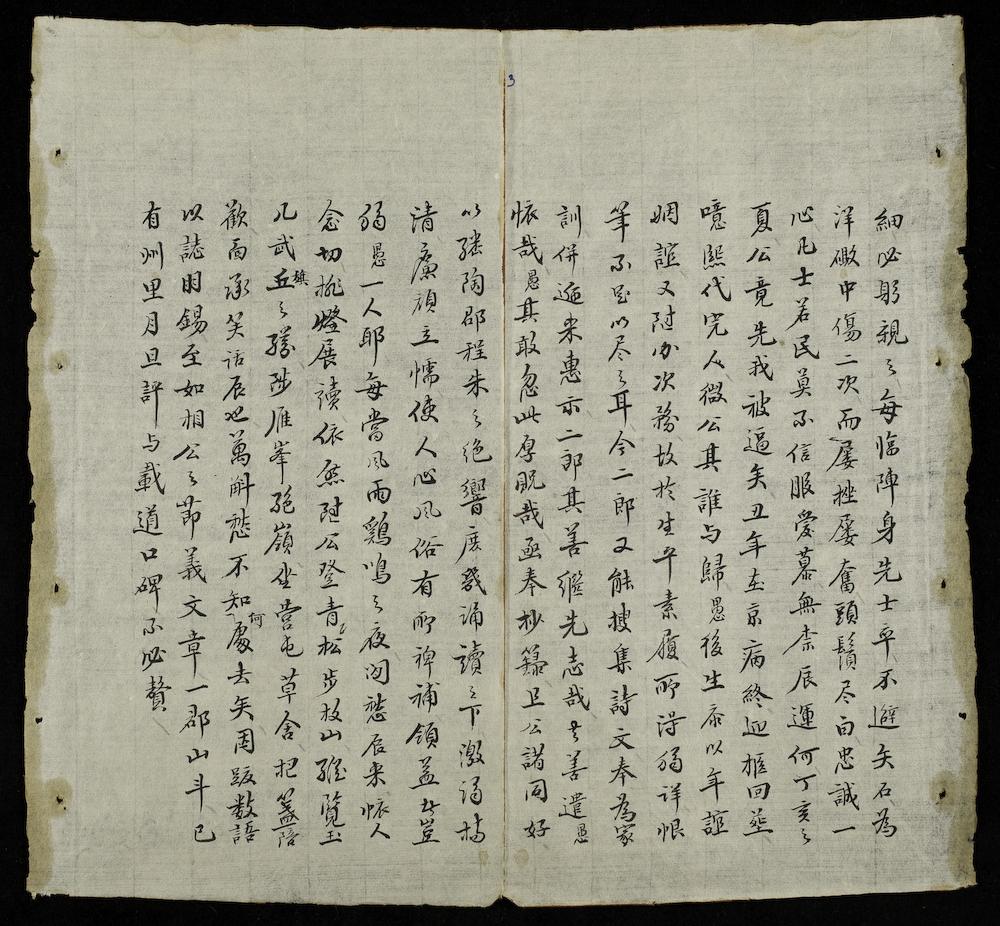 3
細必躬親之每臨陣身先士卒不避矢石為
洋礮中傷二次而屢挫屢奮頭鬚尽白忠誠一
心凡士若民莫不信服愛慕無柰辰運何丁亥之
夏公竟先我被逼矣丑年在京病終迎柩回葬
噫熙代完人微公其誰与歸愚後生忝以年誼
姻誼又附劝次務故於生平素履所得頗詳恨
筆不足以尽之耳今二郎又能搜集詩文奉為家
訓併逓来惠示二郎其善繼先志哉其善遣愚
懷哉愚其敢忽此厚貺哉亟奉抄籙且公諸同好
以繼陶邵程朱之絶響庶幾誦讀之下激濁揚
清廉頑立懦使人心風俗有所裨補領益者豈
獨愚一人耶每當風雨鷄鳴之夜闷愁辰来懷人
念切挑燈展讀依然陪公登青松步故山縱覽玉
几武丘旗之勝陟雁峯絶嶺坐营屯草舍把盞陪
歡面承笑話辰也萬斛愁不知何處去矣因跋数語
以誌朋錫至如相公之節義文章一郡山斗已
有州里月旦評与載道口碑不必贅